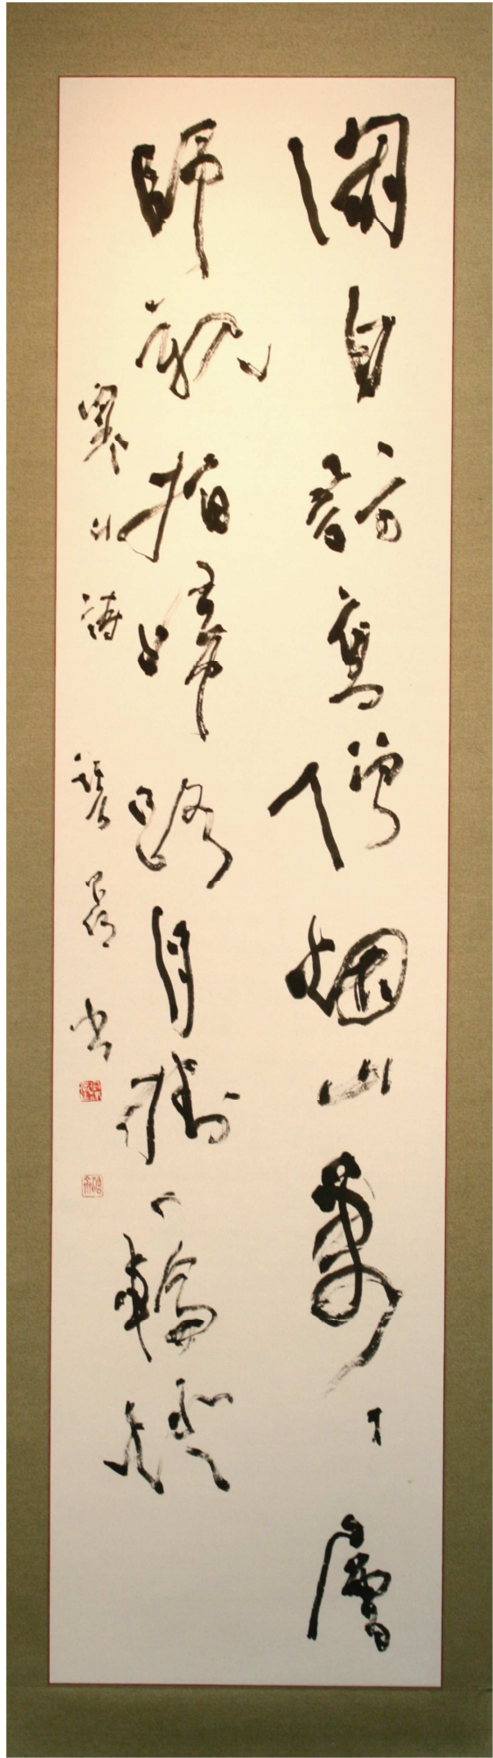 閑自訪高僧烟山萬々層
師親指歸路月掛一輪燈
寒山詩 書